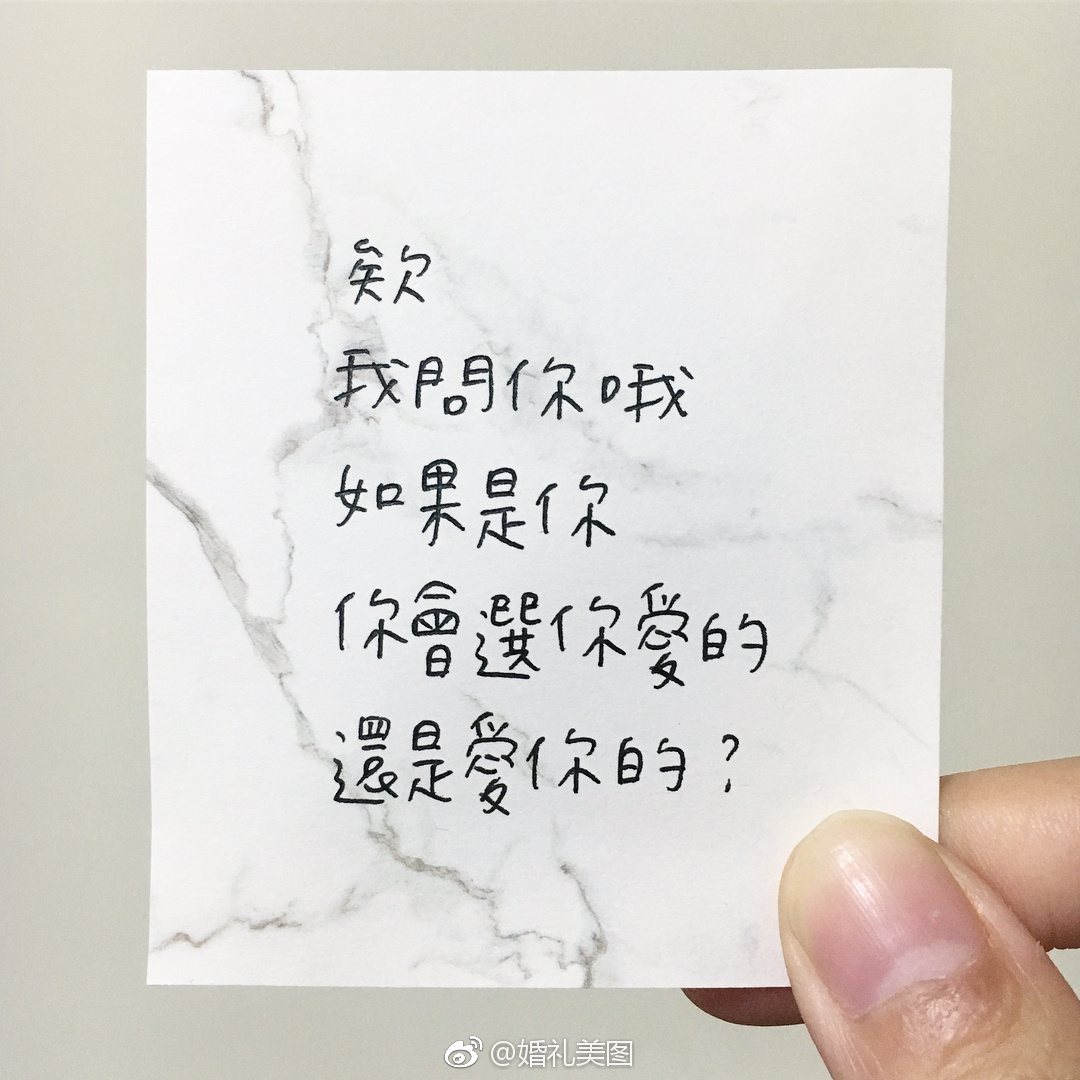 欸
我問你哦
如果是你
你會選你愛的
還是愛你的？
@婚礼美图